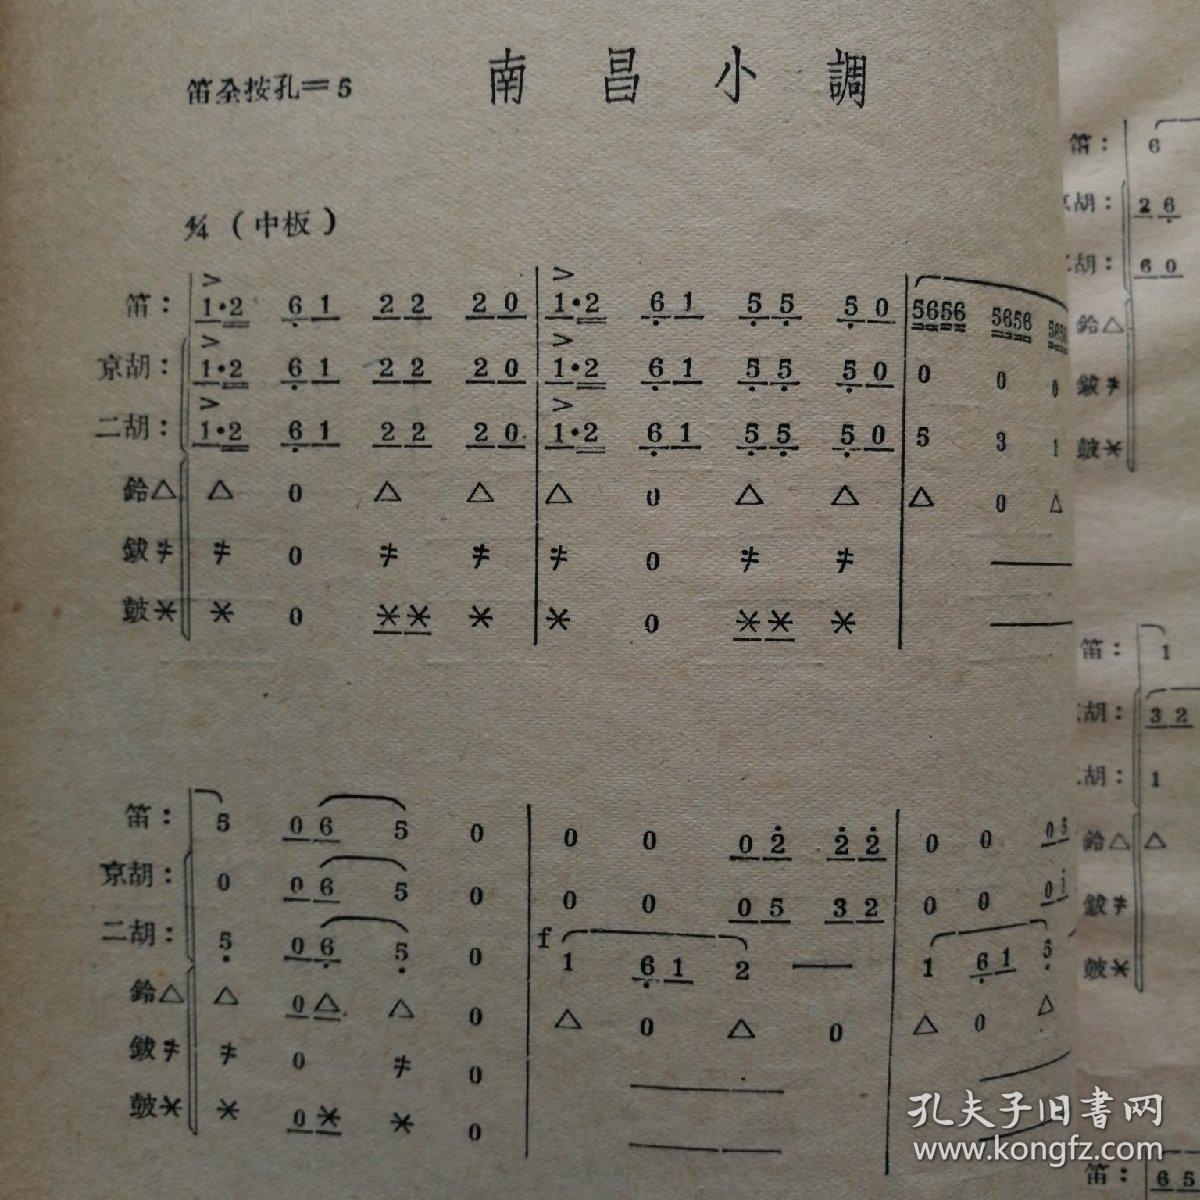 南昌小調
笛全按孔＝5
4/4（中板）
笛： 1·2 6 1 2 2 2 0 | 1·2 6 1 5 5 5 0 | 5656 5656 5656
京胡： 1·2 6 1 2 2 2 0 | 1·2 6 1 5 5 5 0 | 0 0 0
二胡： 1·2 6 1 2 2 2 0 | 1·2 6 1 5 5 5 0 | 5 3 1
鈴△ △ 0 △ △ | △ 0 △ △ | △ 0 △
鈸 0 0
鼓
笛： 5 0 6 5 0 | 0 0 0 2 2 2 | 0 0 0 5
京胡： 0 0 6 5 0 | 0 0 0 5 3 2 | 0 0 0 1
二胡： 5 0 6 5 0 | f 1 6 1 2 — | 1 6 1 5
鈴△ △ 0 △ △ 0 | △ 0 △ 0 | △ 0 △
鈸 0 0
鼓 0 0
笛： 6
胡： 2 6
胡： 6 0
鈴△
鈸
鼓
笛： 1
胡： 3 2
胡： 1
鈴△ △
鈸
鼓
笛： 6 5
孔夫子旧書网
www.kongfz.com